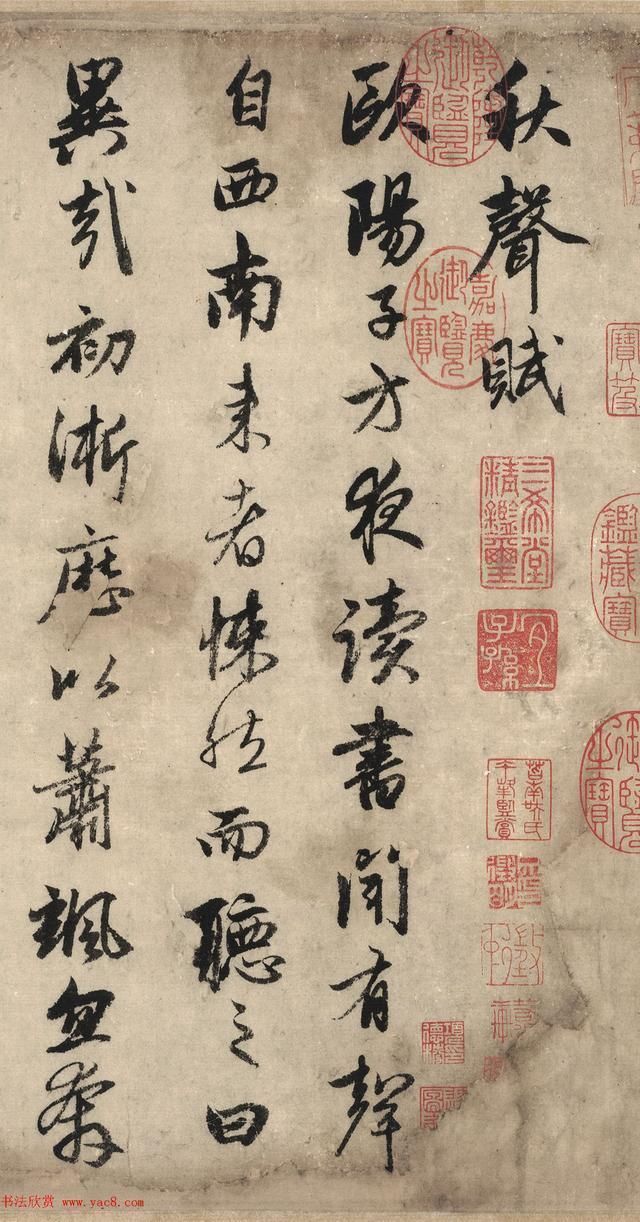 秋聲賦
歐陽子方夜讀書聞有聲
自西南来者悚然而聽之曰
異哉初淅歷以蕭颯忽奔
乾隆御覽之寶
嘉慶御覽之寶
三希堂精鑑璽
宜子孫
寶笈
鑑藏寶
御覽之寶
书法欣赏 www.yac8.com